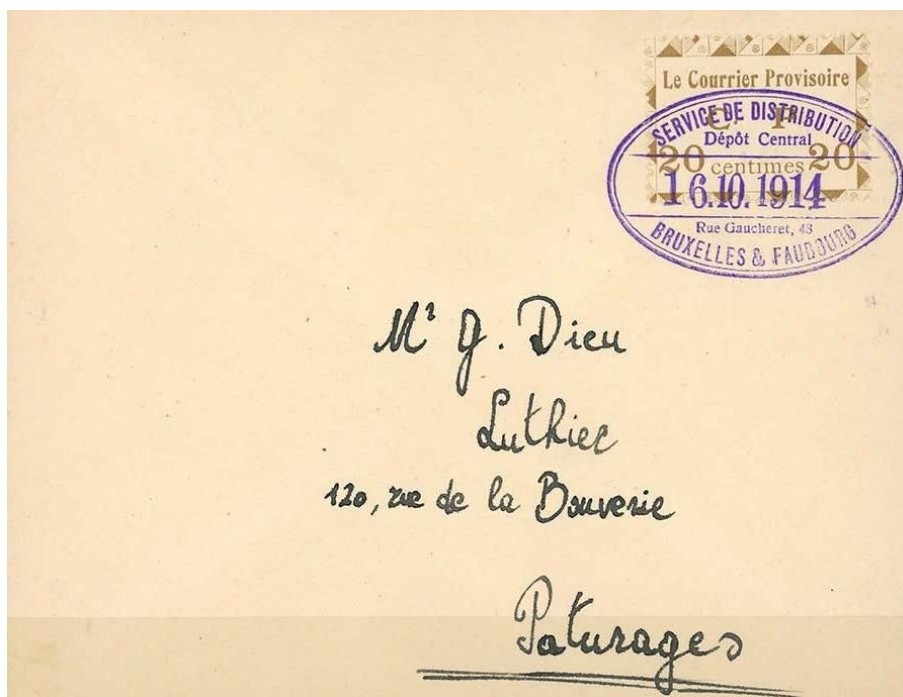 Le Courrier Provisoire
C. P.
20 centimes 20
SERVICE DE DISTRIBUTION
Dépôt Central
16.10.1914
Rue Gaucheret, 43
BRUXELLES & FAUBOURG
Mr G. Dieu
Luthier
120, rue de la Bouverie
Paturages